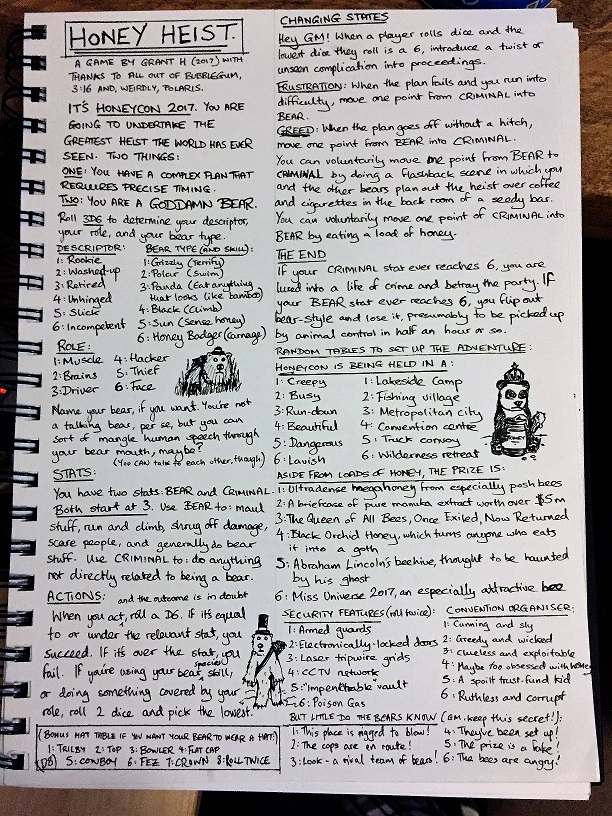 HONEY HEIST.
A GAME BY GRANT H (2017) WITH
THANKS TO ALL OUT OF BUBBLEGUM,
3:16 AND, WEIRDLY, POLARIS.
IT'S HONEYCON 2017. YOU ARE
GOING TO UNDERTAKE THE
GREATEST HEIST THE WORLD HAS EVER
SEEN. TWO THINGS:
ONE: YOU HAVE A COMPLEX PLAN THAT
REQUIRES PRECISE TIMING.
TWO: YOU ARE A GODDAMN BEAR.
Roll 3D6 to determine your descriptor,
your role, and your bear type.
DESCRIPTOR:
1: Rookie
2: Washed-up
3: Retired
4: Unhinged
5: Slick
6: Incompetent
BEAR TYPE (AND SKILL):
1: Grizzly (Terrify)
2: Polar (Swim)
3: Panda (Eat anything
that looks like bamboo)
4: Black (Climb)
5: Sun (Sense honey)
6: Honey Badger (carnage)
ROLE:
1: Muscle
2: Brains
3: Driver
4: Hacker
5: Thief
6: Face
Name your bear, if you want. You're not
a talking bear, per se, but you can
sort of mangle human speech through
your bear mouth, maybe?
(You CAN talk to each other, though)
STATS:
You have two stats: BEAR and CRIMINAL.
Both start at 3. Use BEAR to: maul
stuff, run and climb, shrug off damage,
scare people, and generally do bear
stuff. Use CRIMINAL to: do anything
not directly related to being a bear.
ACTIONS:
When you act, and the outcome is in doubt
roll a D6. If it's equal
to or under the relevant stat, you
succeed. If it's over the stat, you
fail. If you're using your bear special skill,
or doing something covered by your
role, roll 2 dice and pick the lowest.
(BONUS HAT TABLE IF YOU WANT YOUR BEAR TO WEAR A HAT:)
1: TRILBY 2: TOP 3: BOWLER 4: FLAT CAP
(D8) 5: COWBOY 6: FEZ 7: CROWN 8: ROLL TWICE
CHANGING STATES
Hey GM! When a player rolls dice and the
lowest dice they roll is a 6, introduce a twist or
unseen complication into proceedings.
FRUSTRATION: When the plan fails and you run into
difficulty, move one point from CRIMINAL into
BEAR.
GREED: When the plan goes off without a hitch,
move one point from BEAR into CRIMINAL.
You can voluntarily move one point from BEAR to
CRIMINAL by doing a flashback scene in which you
and the other bears plan out the heist over coffee
and cigarettes in the back room of a seedy bar.
You can voluntarily move one point of CRIMINAL into
BEAR by eating a load of honey.
THE END
If your CRIMINAL stat ever reaches 6, you are
lured into a life of crime and betray the party. If
your BEAR stat ever reaches 6, you flip out
bear-style and lose it, presumably to be picked up
by animal control in half an hour or so.
RANDOM TABLES TO SET UP THE ADVENTURE:
HONEYCON IS BEING HELD IN A:
1: Creepy
2: Busy
3: Run-down
4: Beautiful
5: Dangerous
6: Lavish
1: Lakeside Camp
2: Fishing village
3: Metropolitan city
4: Convention centre
5: Truck convoy
6: Wilderness retreat
ASIDE FROM LOADS OF HONEY, THE PRIZE IS:
1: Ultradense megahoney from especially posh bees
2: A briefcase of pure manuka extract worth over $5m
3: The Queen of All Bees, Once Exiled, Now Returned
4: Black Orchid Honey, which turns anyone who eats
it into a goth
5: Abraham Lincoln's beehive, thought to be haunted
by his ghost
6: Miss Universe 2017, an especially attractive bee
SECURITY FEATURES (roll twice):
1: Armed guards
2: Electronically-locked doors
3: Laser tripwire grids
4: CCTV network
5: "Impenetrable vault
6: Poison Gas
CONVENTION ORGANISER:
1: Cunning and sly
2: Greedy and wicked
3: clueless and exploitable
4: Maybe too obsessed with honey
5: A spoilt trust-fund kid
6: Ruthless and corrupt
BUT LITTLE DO THE BEARS KNOW (GM: keep this secret!):
1: This place is rigged to blow!
2: The cops are en route!
3: Look - a rival team of bears!
4: They've been set up!
5: The prize is a fake!
6: The bees are angry!